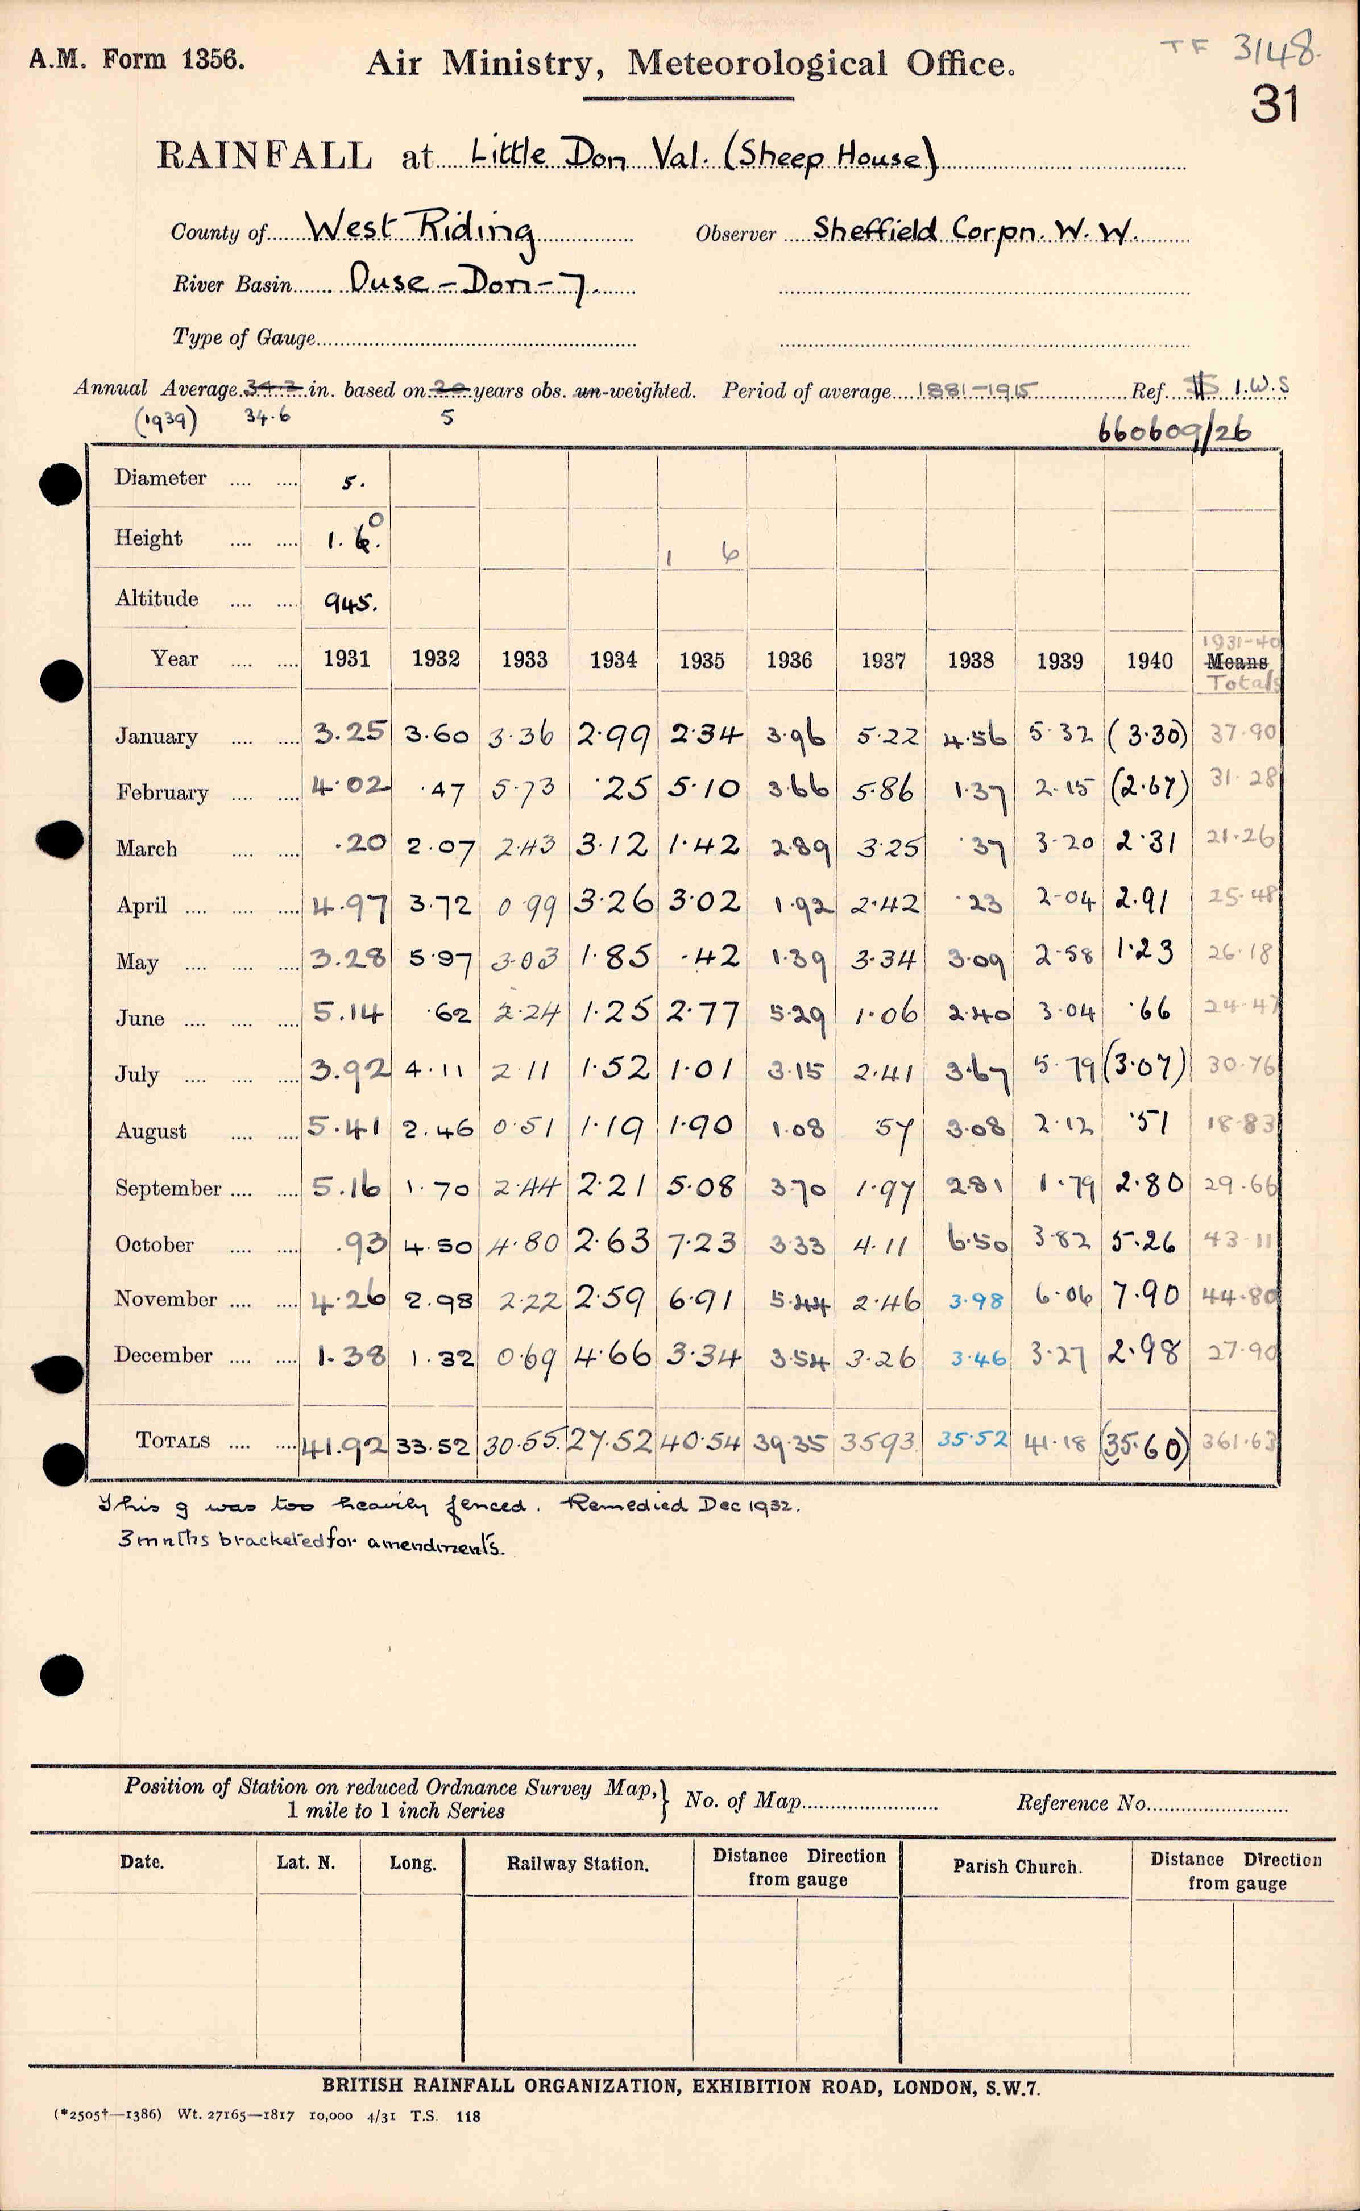 A.M. Form 1356.
Air Ministry, Meteorological Office.
TF 3148.
31
RAINFALL at Little Don Val. (Sheep House)
County of West Riding Observer Sheffield Corpn. W. W.
River Basin Ouse - Don - 7.
Type of Gauge
Annual Average 34.2 in. based on 20 years obs. un-weighted. Period of average 1881-1915 Ref. I.W.S
(1939) 34.6 5 660609/26
Diameter 5.
Height 1. 6. 0 1 6
Altitude 945.
1931-40
Year 1931 1932 1933 1934 1935 1936 1937 1938 1939 1940 Means
Totals
January 3.25 3.60 3.36 2.99 2.34 3.96 5.22 4.56 5.32 (3.30) 37.90
February 4.02 .47 5.73 .25 5.10 3.66 5.86 1.37 2.15 (2.67) 31.28
March .20 2.07 2.43 3.12 1.42 2.89 3.25 .37 3.20 2.31 21.26
April 4.97 3.72 0.99 3.26 3.02 1.92 2.42 .23 2.04 2.91 25.48
May 3.28 5.97 3.03 1.85 .42 1.39 3.34 3.09 2.58 1.23 26.18
June 5.14 .62 2.24 1.25 2.77 5.29 1.06 2.40 3.04 .66 24.47
July 3.92 4.11 2.11 1.52 1.01 3.15 2.41 3.67 5.79 (3.07) 30.76
August 5.41 2.46 0.51 1.19 1.90 1.08 57 3.08 2.12 .51 18.83
September 5.16 1.70 2.44 2.21 5.08 3.70 1.97 2.81 1.79 2.80 29.66
October .93 4.50 4.80 2.63 7.23 3.33 4.11 6.50 3.82 5.26 43.11
November 4.26 2.98 2.22 2.59 6.91 5.44 2.46 3.98 6.06 7.90 44.80
December 1.38 1.32 0.69 4.66 3.34 3.54 3.26 3.46 3.27 2.98 27.90
TOTALS 41.92 33.52 30.55 27.52 40.54 39.35 35.93 35.52 41.18 (35.60) 361.63
This g was too heavily fenced. Remedied Dec 1932.
3 mnths bracketed for amendments.
Position of Station on reduced Ordnance Survey Map, } No. of Map Reference No.
1 mile to 1 inch Series
Date. Lat. N. Long. Railway Station. Distance Direction from gauge Parish Church. Distance Direction from gauge
BRITISH RAINFALL ORGANIZATION, EXHIBITION ROAD, LONDON, S.W.7.
(*2505†—1386) Wt. 27165—1817 10,000 4/31 T.S. 118